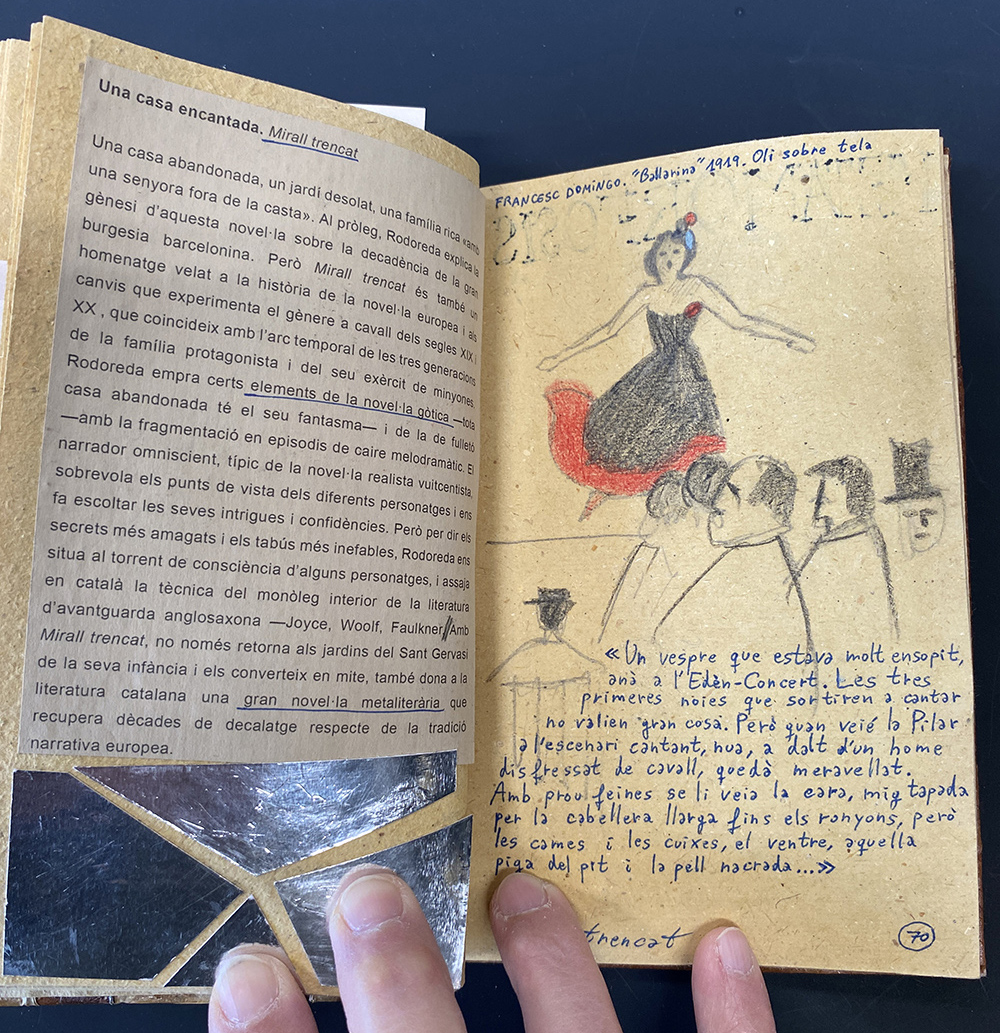 Una casa encantada. Mirall trencat
Una casa abandonada, un jardí desolat, una família rica «amb
una senyora fora de la casta». Al pròleg, Rodoreda explica la
gènesi d'aquesta novel·la sobre la decadència de la gran
burgesia barcelonina. Però Mirall trencat és també un
homenatge velat a la història de la novel·la europea i als
canvis que experimenta el gènere a cavall dels segles XIX i
XX , que coincideix amb l'arc temporal de les tres generacions
de la família protagonista i del seu exèrcit de minyones.
Rodoreda empra certs elements de la novel·la gòtica —tota
casa abandonada té el seu fantasma— i de la de fulletó
—amb la fragmentació en episodis de caire melodramàtic. El
narrador omniscient, típic de la novel·la realista vuitcentista,
sobrevola els punts de vista dels diferents personatges i ens
fa escoltar les seves intrigues i confidències. Però per dir els
secrets més amagats i els tabús més inefables, Rodoreda ens
situa al torrent de consciència d'alguns personatges, i assaja
en català la tècnica del monòleg interior de la literatura
d'avantguarda anglosaxona —Joyce, Woolf, Faulkner//Amb
Mirall trencat, no només retorna als jardins del Sant Gervasi
de la seva infància i els converteix en mite, també dona a la
literatura catalana una gran novel·la metaliterària que
recupera dècades de decalatge respecte de la tradició
narrativa europea.
FRANCESC DOMINGO. "Ballarina" 1919. Oli sobre tela
«Un vespre que estava molt ensopit,
anà a l'Edèn-Concert. Les tres
primeres noies que sortiren a cantar
no valien gran cosa. Però quan veié la Pilar
a l'escenari cantant, nua, a dalt d'un home
disfressat de cavall, quedà meravellat.
Amb prou feines se li veia la cara, mig tapada
per la cabellera llarga fins els ronyons, però
les cames i les cuixes, el ventre, aquella
piga del pit i la pell nacrada...»
trencat
70